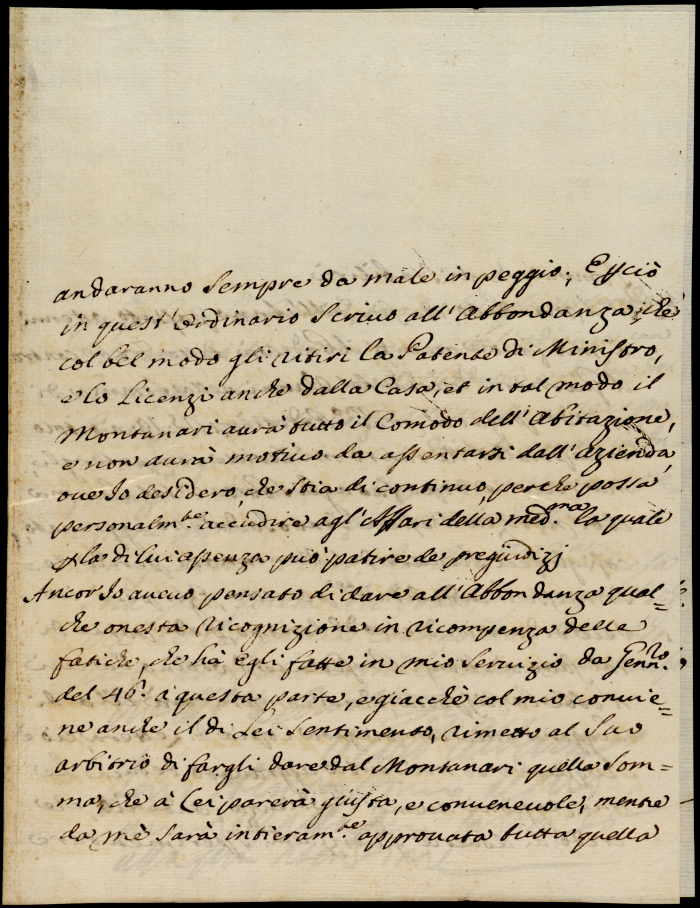 andaranno sempre da male in peggio; E p̲ciò
in quest'Ordinario scrivo all'Abbondanza, che
col bel modo gli ritiri la Patente di Ministro,
e lo Licenzi anche dalla Casa, et in tal modo il
Montanari aurà tutto il Comodo dell'Abitazione,
e non aurà motivo da assentarsi dall'Azienda,
oue Io desidero, che stia di continuo, perche possa
personalm.te accudire agl'Affari della med.ma la quale
p̲ la di lui assenza può patire de pregiudizj
Ancor Io aueuo pensato di dare all'Abbondanza qual=
che onesta ricognizione in ricompenza delle
fatiche, che hà egli fatte in mio Seruizio da Genn.ro
del 46. a questa parte, e giacchè col mio conuie=
ne anche il di Lei Sentimento, rimetto al Suo
arbitrio di fargli dare dal Montanari quella Som=
ma, che à Lei parerà giusta, e conueneuole, mentre
da mè sarà intieram.te approuata tutta quella